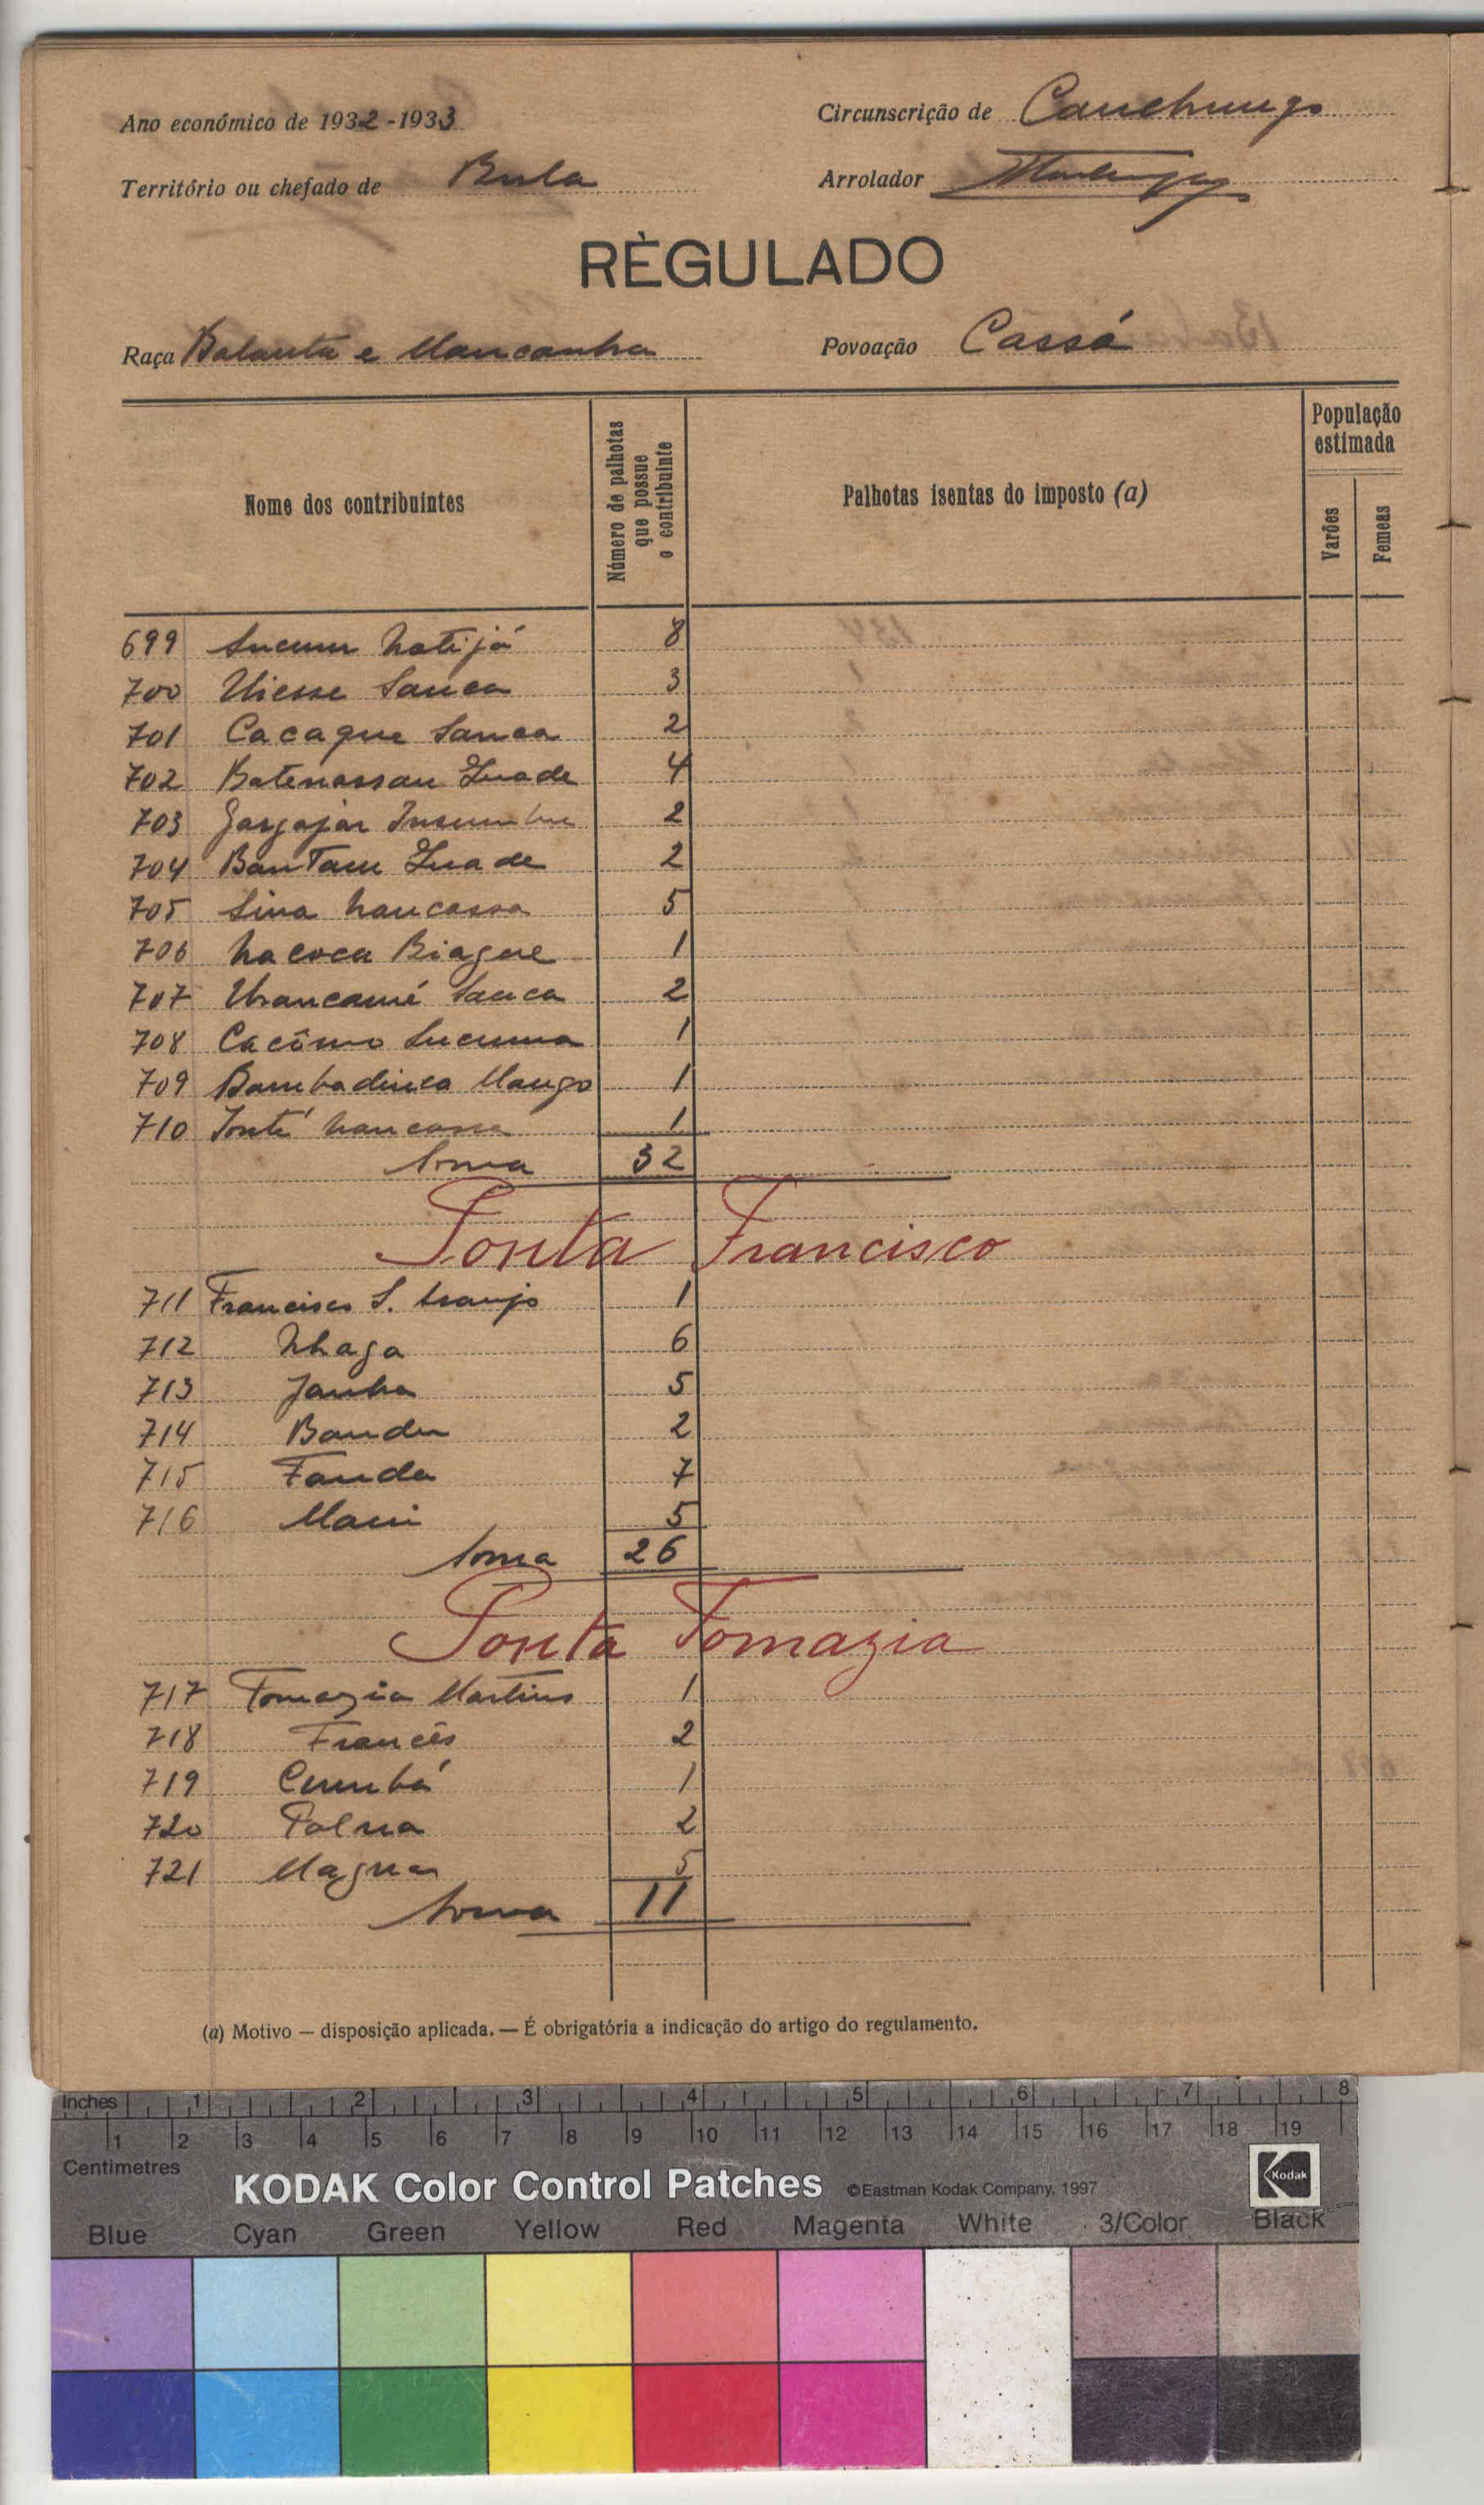 Ano económico de 1932-1933
Circunscrição de Canchungo
Território ou chefado de Bula
Arrolador
RÈGULADO
Raça Balanta e Mancanha
Povoação Cassá
Nome dos contribuintes
Número de palhotas que possue o contribuinte
Palhotas isentas do imposto (a)
População estimada
Varões
Femeas
699 Sucum Natijá 8
700 Uiesse Sanca 3
701 Cacaque Sanca 2
702 Batenassau Quade 4
703 2
704 Bantam Quade 2
705 Sina Nancassa 5
706 Nacoca Biague 1
707 Sanca 2
708 Cacômo Sucuma 1
709 Bambadinca Mango 1
710 Nancassa 1
Soma 32
Ponta Francisco
711 Francisco S. Araujo 1
712 Nhaga 6
713 Janha 5
714 Bandu 2
715 Fanda 7
716 5
Soma 26
Ponta Tomazia
717 Tomazia Martins 1
718 Francês 2
719 Cumbá 1
720 Palna 2
721 Magna 5
Soma 11
(a) Motivo — disposição aplicada. — É obrigatória a indicação do artigo do regulamento.
Inches 1 2 3 4 5 6 7 8
1 2 3 4 5 6 7 8 9 10 11 12 13 14 15 16 17 18 19
Centimetres
KODAK Color Control Patches ©Eastman Kodak Company, 1997 Kodak
Blue Cyan Green Yellow Red Magenta White 3/Color Black